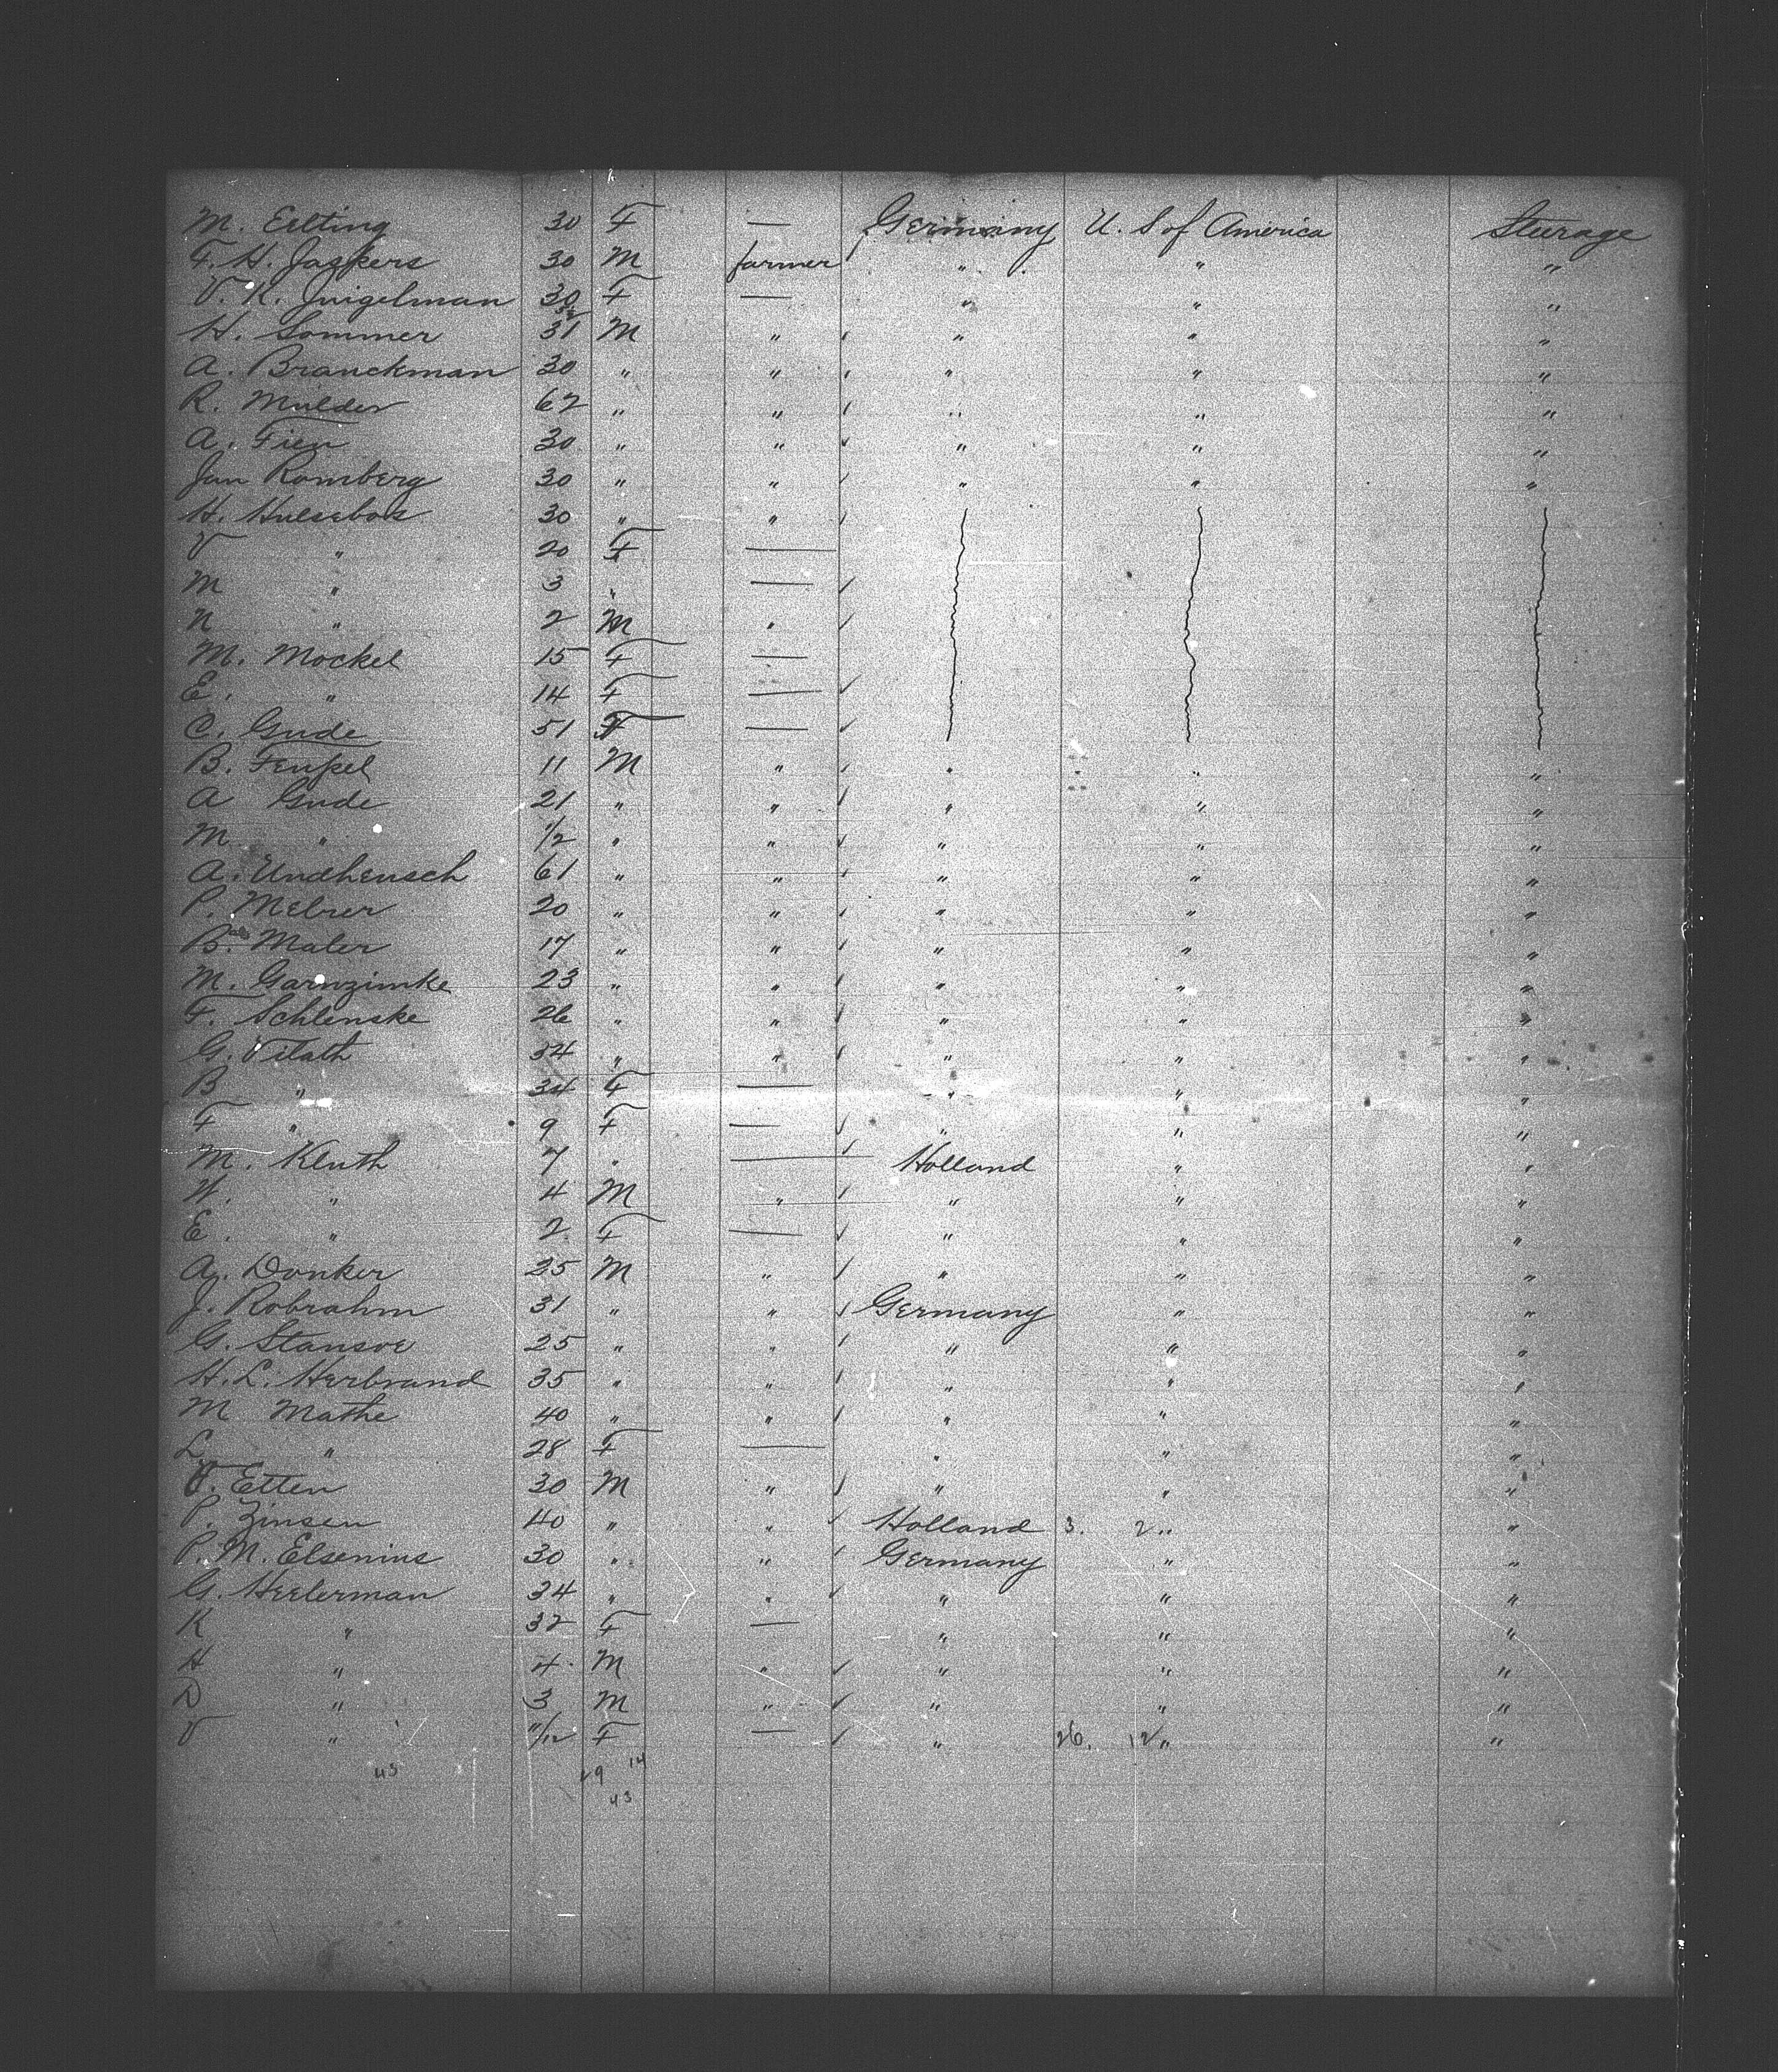 M. Eelting 30 F — Germany U. S of America Steerage
F. H. Jaspers 30 M farmer " " "
V. K. Jnigelman 30 F — " " "
H. Sommer 31 M " " " "
A. Branckman 30 " " " " "
R. Mulder 62 " " " " "
A. Fien 30 " " " " "
Jan Romberg 30 " " " " "
H. Hulsebos 30 " "
V " 20 F —
M " 3 " —
N " 2 M "
M. Mockel 15 F —
E. " 14 F —
C. Gude 51 F —
B. Fenkel 11 M " " " "
A Gude 21 " " " " "
M " 1/2 " " " " "
A. Undhensch 61 " " " " "
P. Melrer 20 " " " " "
B. Maler 17 " " " " "
M. Garnzimke 23 " " " " "
F. Schlenske 26 " " " " "
G. Vilath 34 " " " " "
B " 34 F — " " "
F " 9 F — " " "
M. Kluth 7 " — Holland " "
W. " 4 M " " " "
E. " 2 F — " " "
A. Donker 25 M " " " "
J. Robrahm 31 " " Germany " "
G. Stansve 25 " " " " "
H. L. Herbrand 35 " " " " "
M Mathe 40 " " " " "
L " 28 F — " " "
V. Etten 30 M " " " "
P. Zinsen 40 " " Holland 3. 2 " "
P. M. Elsenius 30 " " Germany " "
G. Heelerman 34 " " " " "
K " 32 F — " " "
H " 4 M " " " "
D " 3 M " " " "
V " 11/12 F — " 26. 12 " "
43 29 14
43